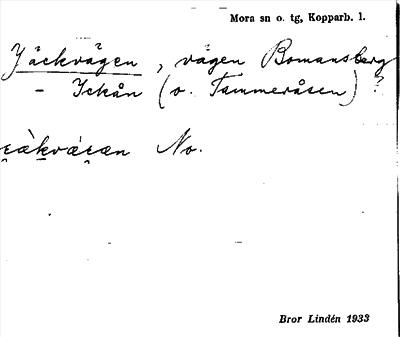 Mora sn o. tg, Kopparb. l.
Jäckvägen, vägen Bomansberg
- Ickån (o. Tammeråsen)?
No.
Bror Lindén 1933